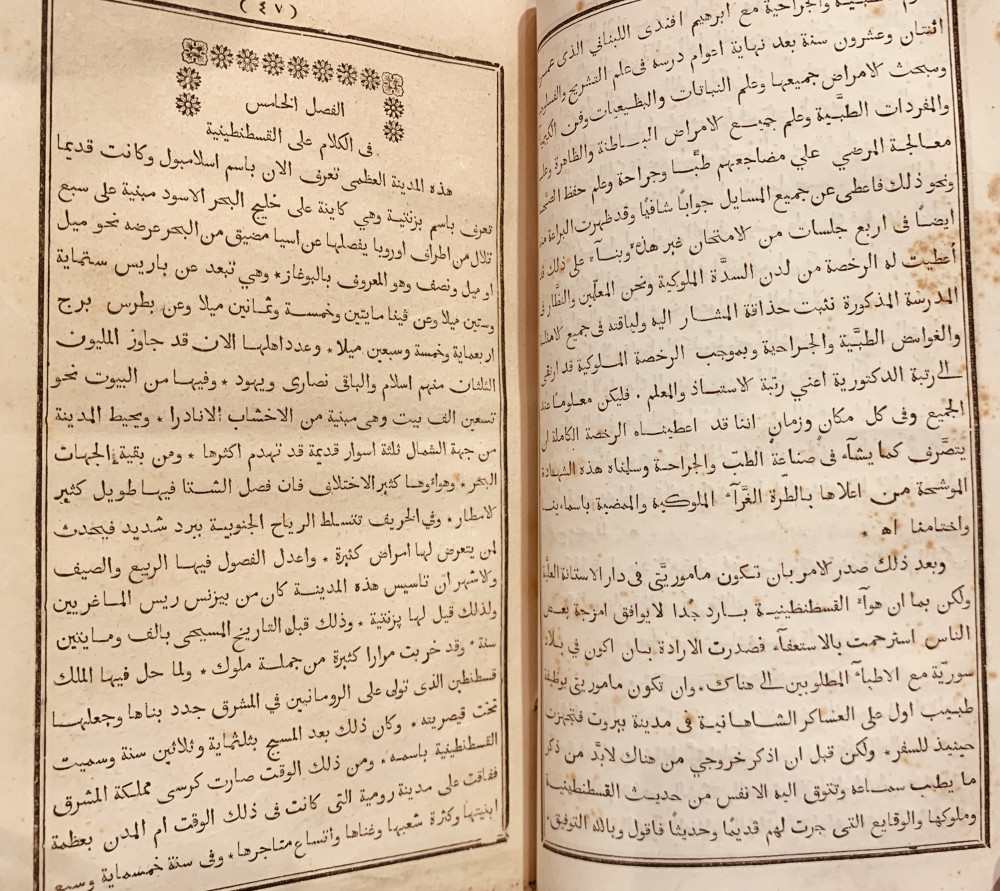 والجراحية مع ابرهيم افندى اللبنانى الذى عمره
اثنتان وعشرون سنة بعد نهاية اعوام درسه فى علم التشريح
وسبحث الامراض جميعها وعلم النباتات والطبيعيات وفن
والمفردات الطبَّية وعلم جميع الامراض الباطنة والظاهرة
معالجة المرضي علي مضاجعهم طبًّا وجراحة وعلم حفظ
ونحو ذلك فاعطى عن جميع المسايل جوابًا شافيًا وقد ظهرت البراعة منه
ايضًا فى اربع جلسات من الامتحان غير هذه وبنآء على ذلك قد
أُعطيت له الرخصة من لدن السدَّة الملوكية ونحن المعلمين والنظَّار فى
المدرسة المذكورة نثبت حذاقة المشار اليه ولياقته فى جميع
والغوامض الطبَّية والجراحية وبموجب الرخصة الملوكية قد ارتقى
الى رتبة الدكتورية اعني رتبة الاستاذ والمعلم . فليكن معلومًا عند
الجميع وفى كل مكان وزمان اننا قد اعطيناه الرخصة الكاملة ان
يتصَّرف كما يشآء فى صناعة الطبّ والجراحة وسلمناه هذه الشهادة
الموشحة من اعلاها بالطّرة الغَّرآء الملوكية والممضية باسماينا
واختامنا اه ٭
وبعد ذلك صدر الامر بان تكون ماموريَّتى فى دار الاستانة العليَّة
ولكن بما ان هوآء القسطنطينية بارد جدا لا يوافق امزجة بعض
الناس استرحمت بالاستعفآء فصدرت الارادة بان اكون في بلاد
سوريَّة مع الاطبآء المطلوبين الى هناك ٭ وان تكون ماموريتى بوظيفة
طبيب اول على العساكر الشاهانية فى مدينة بيروت فتجهزت
حينيذ للسفر ٭ ولكن قبل ان اذكر خروجي من هناك لابدَّ من ذكر
ما يطيب سماعه وتتوق اليه الانفس من حديث القسطنطينية
وملوكها والوقايع التى جرت لهم قديمًا وحديثًا فاقول وبالله التوفيق ٭
( ٤٧ )
الفصل الخامس
فى الكلام على القسطنطينية
هذه المدينة العظمى تعرف الان باسم اسلامبول وكانت قديما
تعرف باسم بزنتية وهي كاينة على خليج البحر الاسود مبنية على سبع
تلال من اطراف اوروبا يفصلها عن اسيا مضيق من البحر عرضه نحو ميل
او ميل ونصف وهو المعروف بالبوغاز ٭ وهي تبعد عن باريس ستماية
وستين ميلا وعن ڤينا مايتين وخمسة وثمانين ميلا وعن بطرس برج
اربعماية وخمسة وسبعين ميلا ٭ وعدد اهلها الان قد جاوز المليون
الثلثان منهم اسلام والباقى نصارى ويهود ٭ وفيها من البيوت نحو
تسعين الف بيت وهى مبنية من الاخشاب الا نادرا ٭ ويحيط المدينة
من جهة الشمال ثلثة اسوار قديمة قد تهدم اكثرها ٭ ومن بقية الجهات
البحر ٭ وهواوها كثير الاختلاف فان فصل الشتا فيها طويل كثير
الامطار ٭ وفي الخريف تتسلط الرياح الجنوبية ببرد شديد فيحدث
لمن يتعرض لها امراض كثيرة ٭ واعدل الفصول فيها الربيع والصيف
والاشهر ان تاسيس هذه المدينة كان من بيزنس ريس الماغريين
ولذلك قيل لها بزنتية ٭ وذلك قبل التاريخ المسيحى بالف ومايتين
سنة ٭ وقد خربت مرارا كثيرة من جملة ملوك ٭ ولما حل فيها الملك
قسطنطين الذى تولى على الرومانيين في المشرق جدد بناها وجعلها
تخت قيصريته ٭ وكان ذلك بعد المسيح بثلثماية وثلاثين سنة وسميت
القسطنطينية باسمه ٭ ومن ذلك الوقت صارت كرسى مملكة المشرق
ففاقت على مدينة رومية التى كانت في ذلك الوقت ام المدن بعظمة
ابنيتها وكثرة شعبها وغناها واتساع متاجرها ٭ وفى سنة خمسماية وسبع